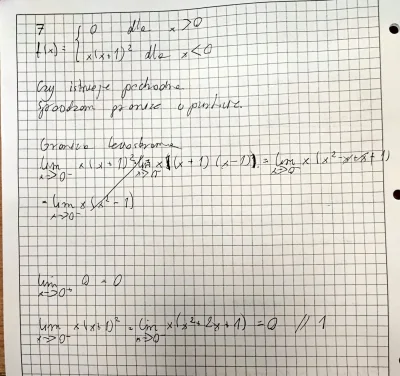 7
f(x) = { 0 dla x > 0
x(x+1)² dla x < 0
Czy istnieje pochodna
Sprawdzam granice w punkcie.
Granica lewostronna
lim x→0⁻ x(x+1)² lim x→0⁻ x((x+1)(x-1)) = lim x→0⁻ x(x²-x+x+1)
= lim x→0⁻ x(x²-1)
lim x→0⁺ 0 = 0
lim x→0⁻ x(x+1)² = lim x→0⁻ x(x²+2x+1) = 0 // 1